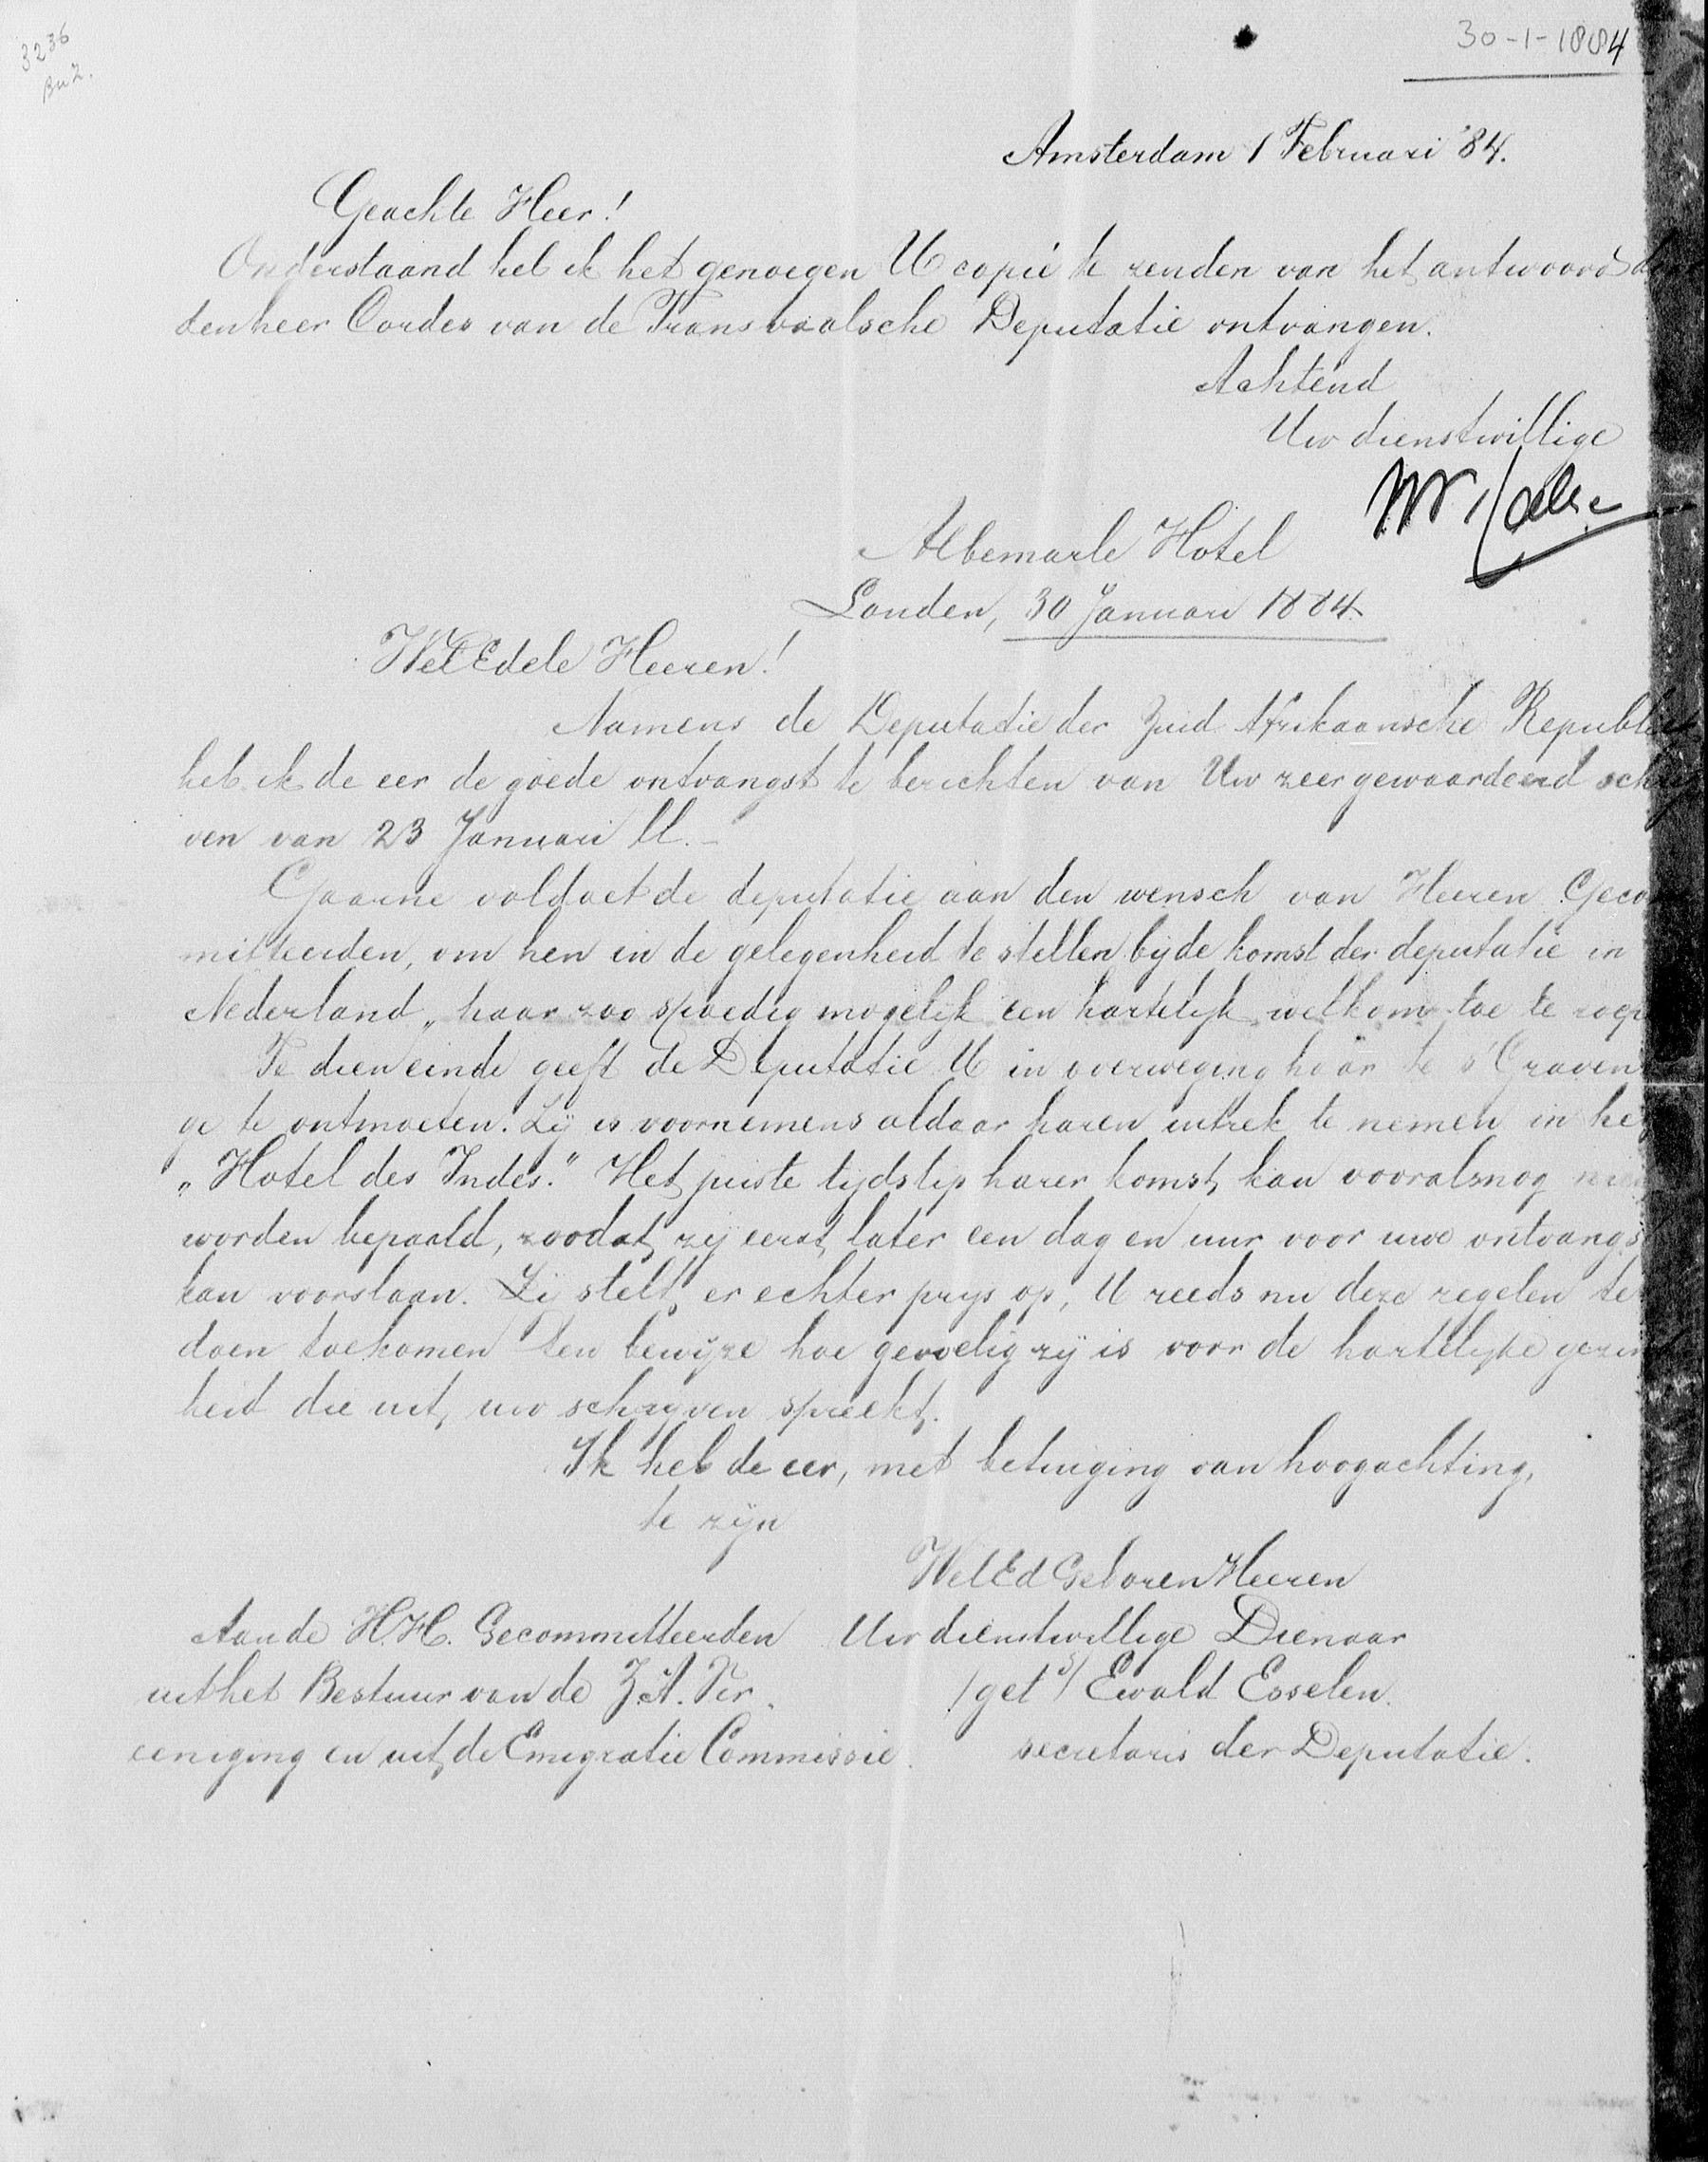 3236
30-1-1884
Amsterdam 1 Februari '84.
Geachte Heer!
Onderstaand heb ik het genoegen U copie te zenden van het antwoord
denheer Cordes van de Transvaalsche Deputatie ontvangen.
Achtend
Uw dienstwillige
Albemarle Hotel
Londen, 30 Januari 1884.
WelEdele Heeren!
Namens de Deputatie der Zuid Afrikaansche Republie
heb ik de eer de goede ontvangst te berichten van Uw zeer gewaardeerd schrij
ven van 23 Januari ll. -
Gaarne voldoet de deputatie aan den wensch van Heeren Geco
mitteerden, om hen in de gelegenheid te stellen bij de komst der deputatie in
Nederland „haar zoo spoedig mogelijk een hartelijk welkom toe te roep
Te dien einde geeft de Deputatie U in overweging haar te s'Graven
ge te ontmoeten. Zij is voornemens aldaar haren intrek te nemen in he
„Hotel des Indes." Het juiste tijdstip harer komst kan vooralsnog nie
worden bepaald, zoodat zij eerst later een dag en uur voor uwe ontvangs
kan voorslaan. Zij stelt er echter prijs op, U reeds nu deze regelen te
doen toekomen ten bewijze hoe gevoelig zij is voor de hartelijke gezin
heid die uit uw schrijven spreekt.
Ik heb de eer, met betuiging van hoogachting,
te zijn
WelEdGeboren Heeren
Aan de H.H. Gecommitteerden Uw dienstwillige Dienaar
uit het Bestuur van de Z.A. Ver. /getd/ Ewald Esselen.
eeniging en uit de Emigratie Commissie. secretaris der Deputatie.